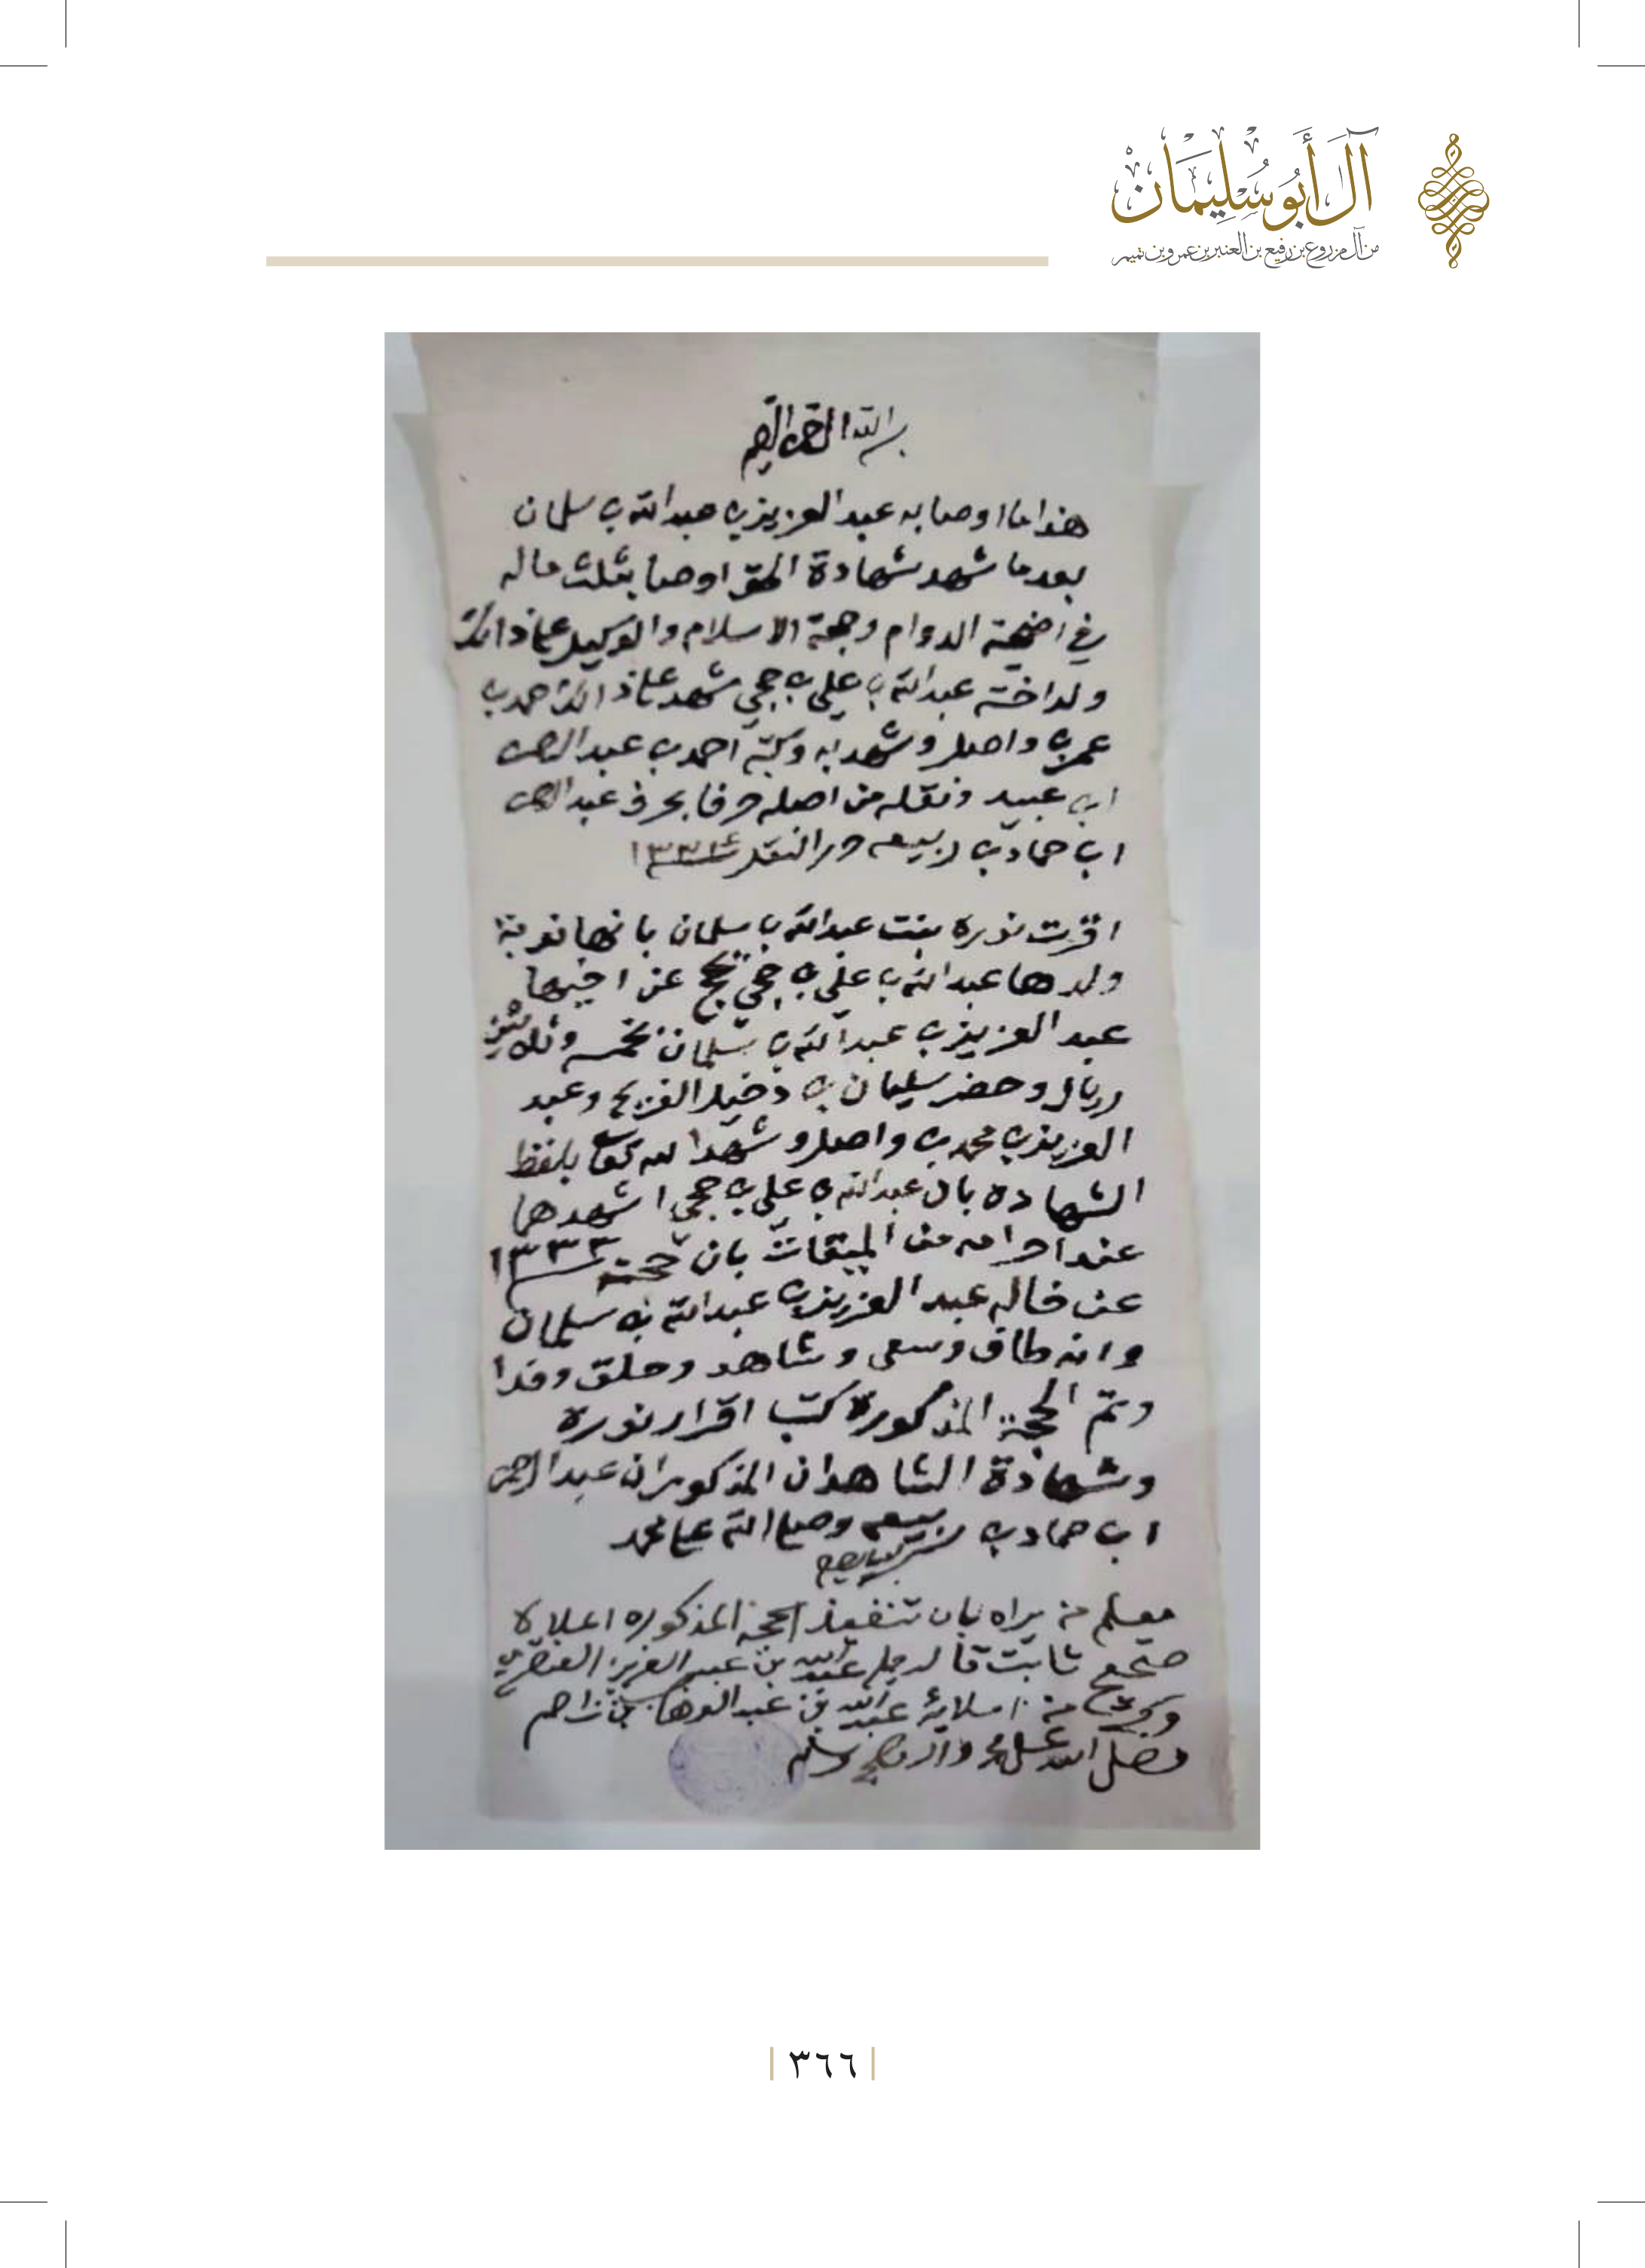 آل أبو سليمان
من آل مزروع بن رفيع بن العنبر بن عمرو بن تميم
بسم الله الرحمن الرحيم
هذا ما اوصا به عبد العزيز بن عبد الله بن سلمان
بعد ما شهد شهادة الحق اوصا بثلث ماله
في اضحية الدوام وحجة الاسلام والوكيل علا ذالك
ولد اخته عبد الله بن علي بن حجي شهد علا ذالك احمد بن
عمر بن واصل وشهد به وكتبه احمد بن عبد الرحمن
ابن عبيد ونقله من اصله حرفا بحرف عبد الرحمن
ابن حماد بن ربيعه حرر النقل
اقرت نوره بنت عبد الله بن سلمان بانها
ولدها عبد الله بن علي بن حجي يحج عن اخيها
عبد العزيز بن عبد الله بن سلمان بخمسه وثلاثين
ريال وحضر سليمان بن دخيل الفريح وعبد
العزيز بن محمد بن واصل وشهدا لله تعا بلفظ
الشهاده بان عبد الله بن علي بن حجي اشهدهما
عند احرامه من الميقات بان حجته ١٣٣٣
عن خاله عبد العزيز بن عبد الله بن سلمان
وانه طاف وسعى وشاهد وحلق وفدا
وتم الحجة المذكورة كتب اقرار نورة
وشهادة الشاهدان المذكوران عبد الرحمن
ابن حماد بن ربيعه وصلى الله علا محمد
بسم الله الرحمن الرحيم
ميعلم من يراه بان تنفيذ الحجة المذكوره اعلاه
صحيح ثابت قاله ممليه عبد الله بن عبد العزيز العنقري
وكتبه من املائه عبد الله بن عبد الوهاب بن زاحم
وصلى الله على محمد واله وصحبه وسلم
٣٦٦